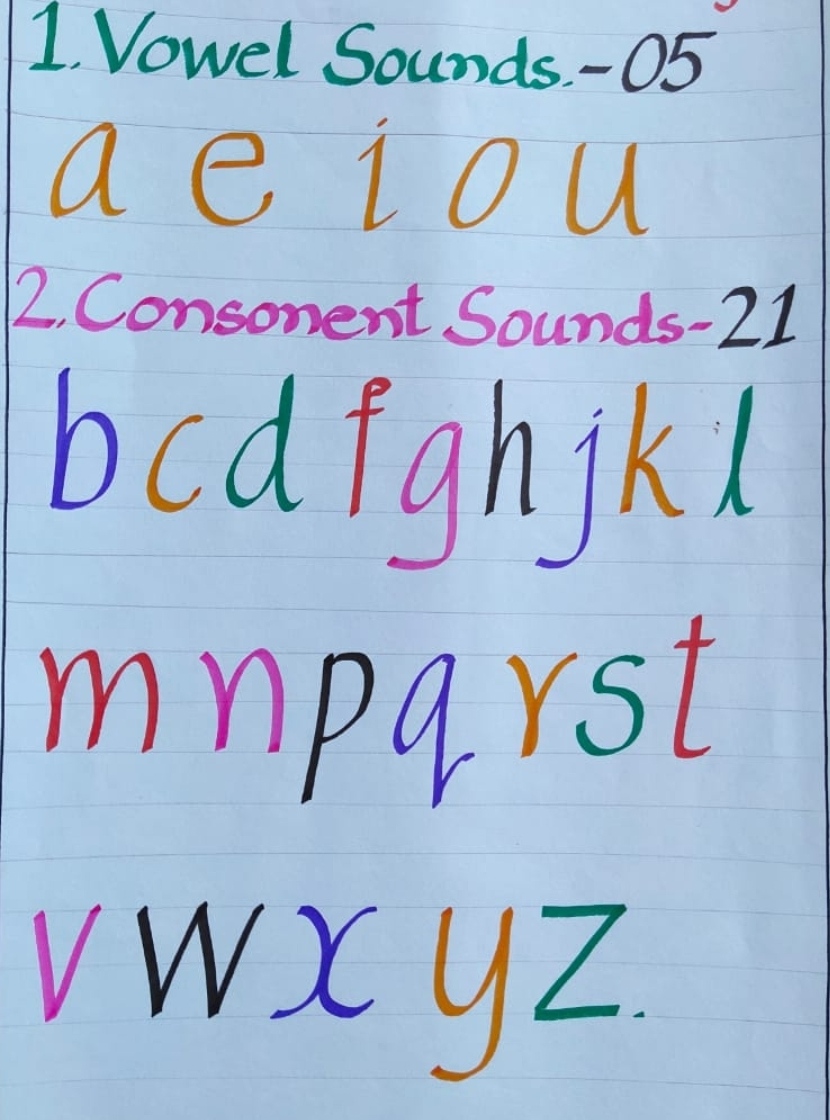 1. Vowel Sounds.-05
a e i o u
2. Consonent Sounds-21
b c d f g h j k l
m n p q r s t
v w x y z.